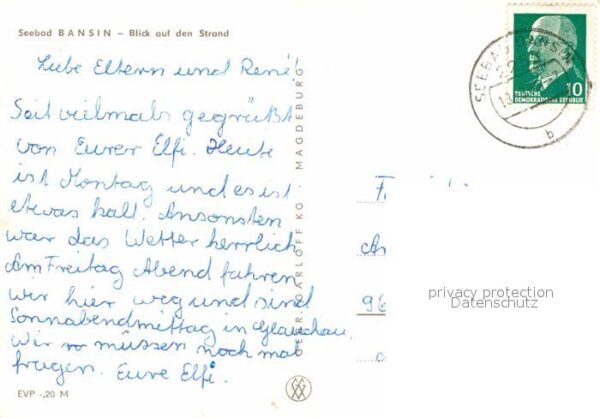 Seebad BANSIN – Blick auf den Strand
Liebe Eltern und René!
Seit vielmals gegrüßt
von Eurer Elfi. Heute
ist Montag und es ist
etwas kalt. Ansonsten
war das Wetter herrlich
Am Freitag Abend fahren
wir hier weg und sind
Sonnabendmittag in Glauchau.
Wir müssen noch mal
fragen. Eure Elfi.
EVP -,20 M
KG MAGDEBURG
SEEBAD BANSIN
b
10
DEUTSCHE
DEMOKRATISCHE REPUBLIK
96
privacy protection
Datenschutz